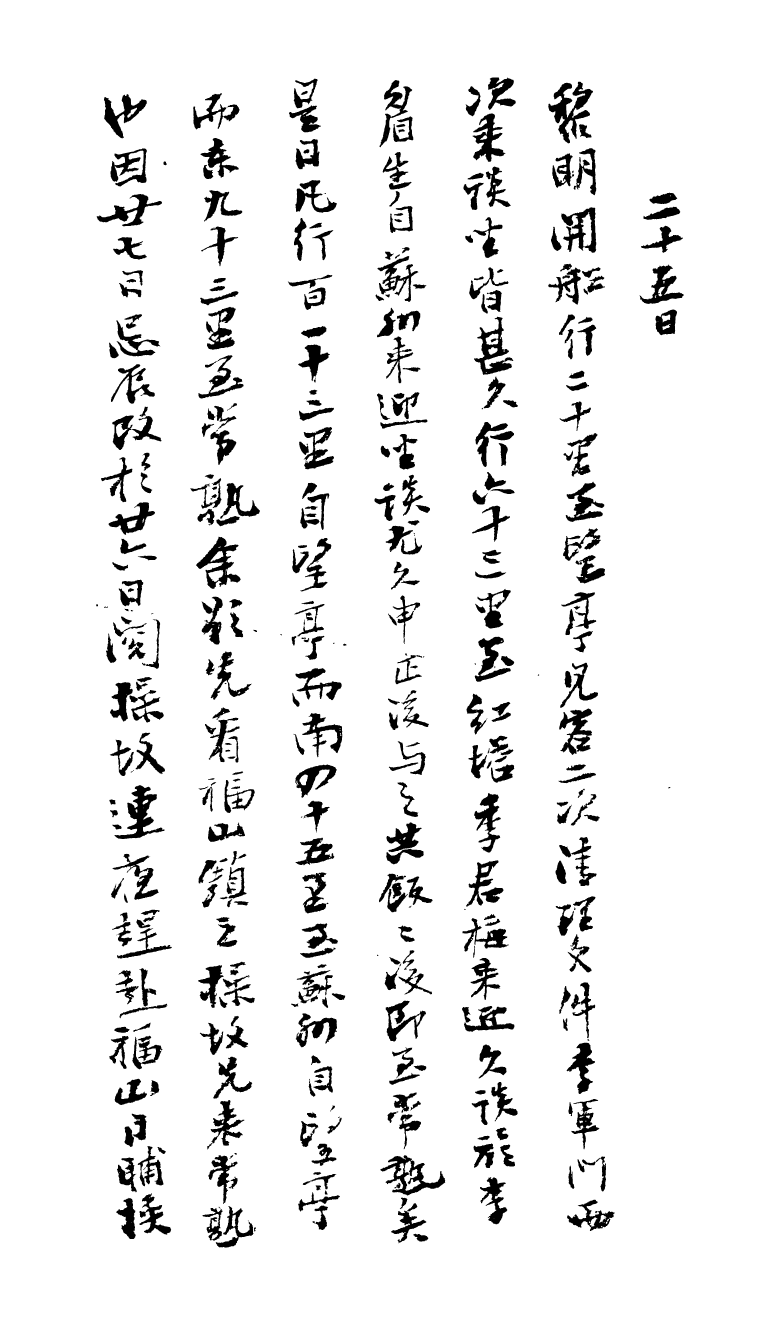 二十五日
黎明開船行二十里至望亭見客二次清理文件李軍門兩
次來談坐皆甚久行六十三里至紅塘季君梅來迎久談旋李
眉生自蘇州來迎坐談尤久申正後与之共飯〻後即至常熟矣
是日凡行百一十三里自望亭而南四十五里至蘇州自望亭
而东九十三里至常熟余擬先看福山鎮之操故先來常熟
也因廿七日忌辰改於廿六日閱操故連夜趕赴福山日晡接